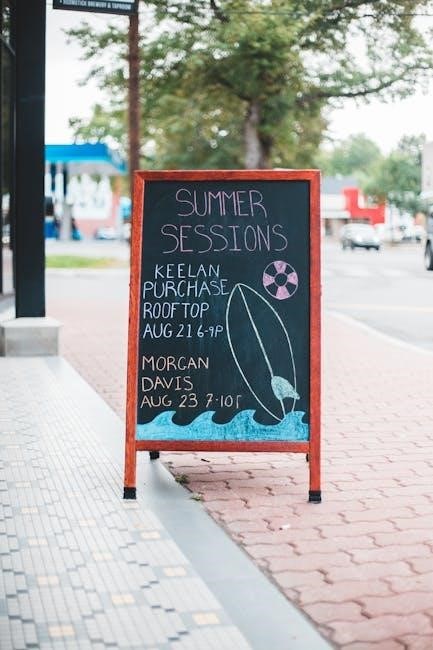 BREWERY & TAPROOM
SUMMER
SESSIONS
KEELAN
PURCHASE
ROOFTOP
AUG 21 6-9P
MORGAN
DAVIS
AUG 23 7-10P